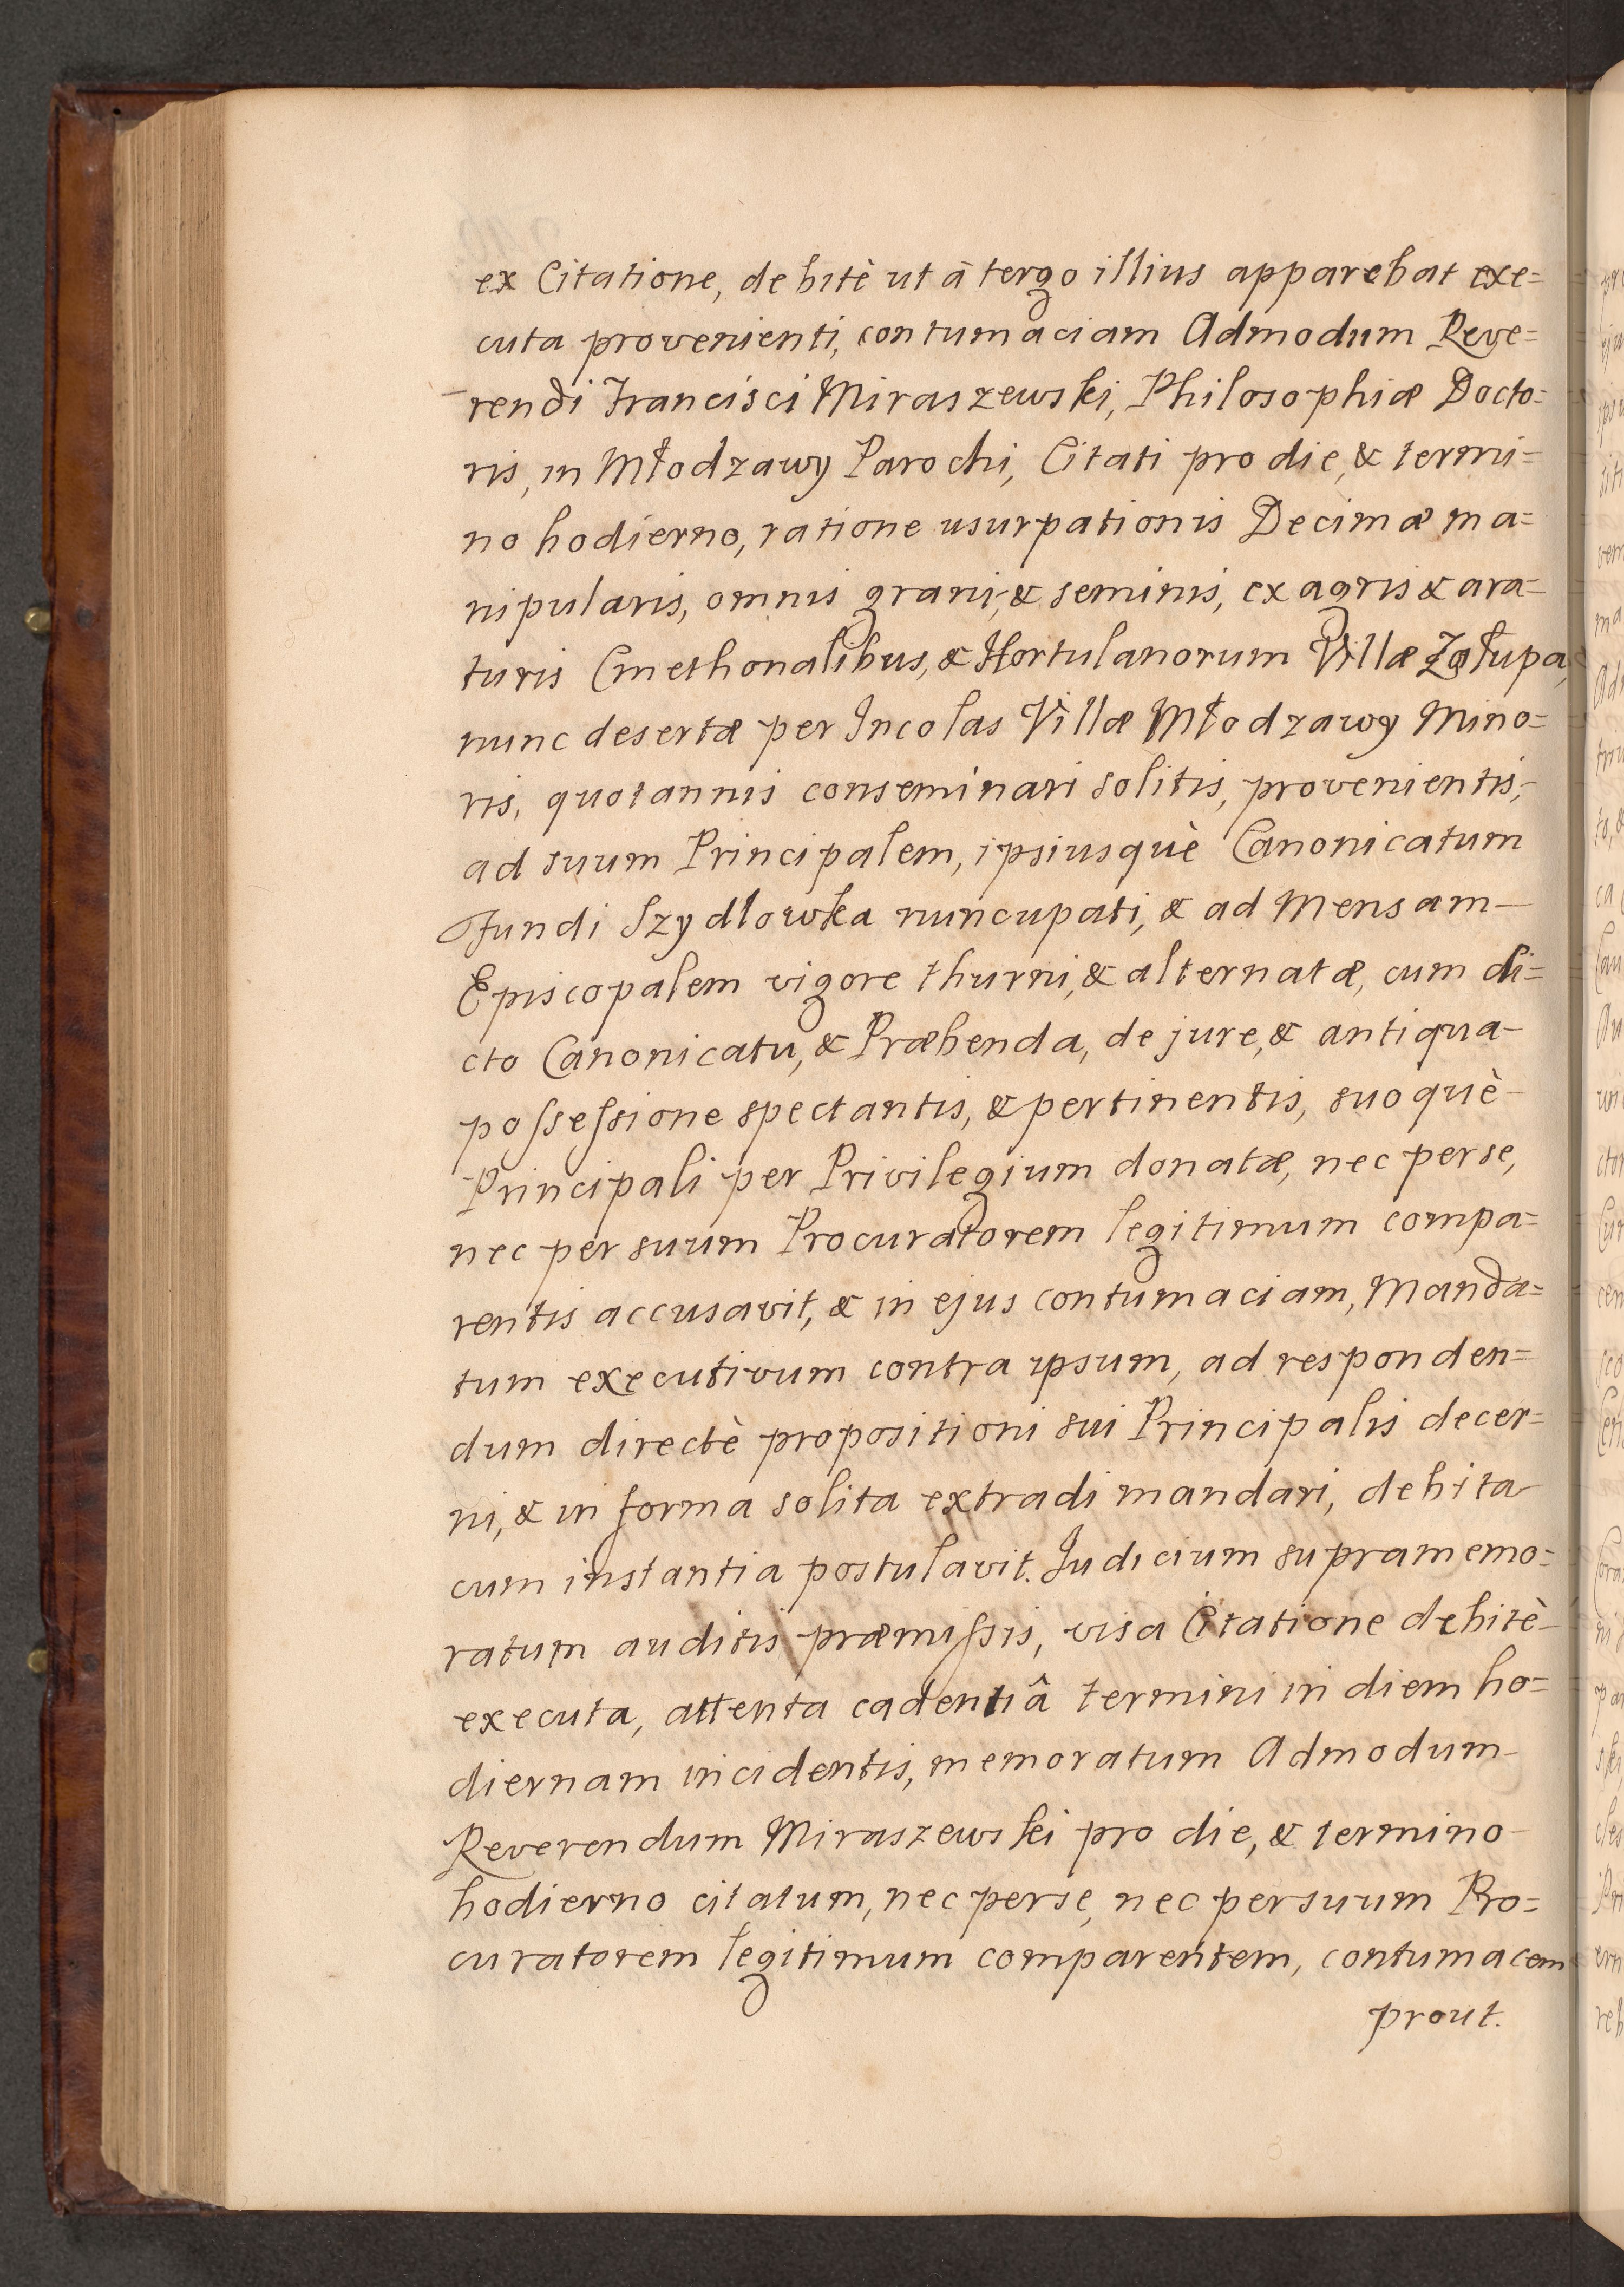 ex Citatione, debitè ut â tergo illius apparebat exe=
cuta provenienti, contumaciam Admodum Reve=
rendi Francisci Miraszewski, Philosophiæ Docto=
ris, in Młodzawy Parochi, Citati pro die, & termi=
no hodierno, ratione usurpationis Decimæ ma=
nipularis, omnis grani, & seminis, ex agris & ara=
turis Cmethonalibus, & Hortulanorum Villæ Załupa,
nunc desertæ per Incolas Villæ Młodzawy Mino=
ris, quotannis conseminari solitis, provenientis,
ad suum Principalem, ipsiusquè Canonicatum
Fundi Szydlowka nuncupati, & ad Mensam
Episcopalem vigore thurni, & alternatæ, cum di=
cto Canonicatu, & Præbenda, de jure, & antiqua
poſseſsione spectantis, & pertinentis, suoquè
Principali per Privilegium donatæ, nec per se,
nec per suum Procuratorem legitimum compa=
rentis accusavit, & in ejus contumaciam, Manda=
tum executivum contra ipsum, ad responden=
dum directè propositioni sui Principalis decer=
ni, & in forma solita extradi mandari, debita
cum instantia postulavit. Judicium supramemo=
ratum auditis præmiſsis, visa Citatione debitè
executa, attenta cadentiâ termini in diem ho=
diernam incidentis, memoratum Admodum
Reverendum Miraszewski pro die, & termino
hodierno citatum, nec per se, nec per suum Pro=
curatorem legitimum comparentem, contumacem
prout.